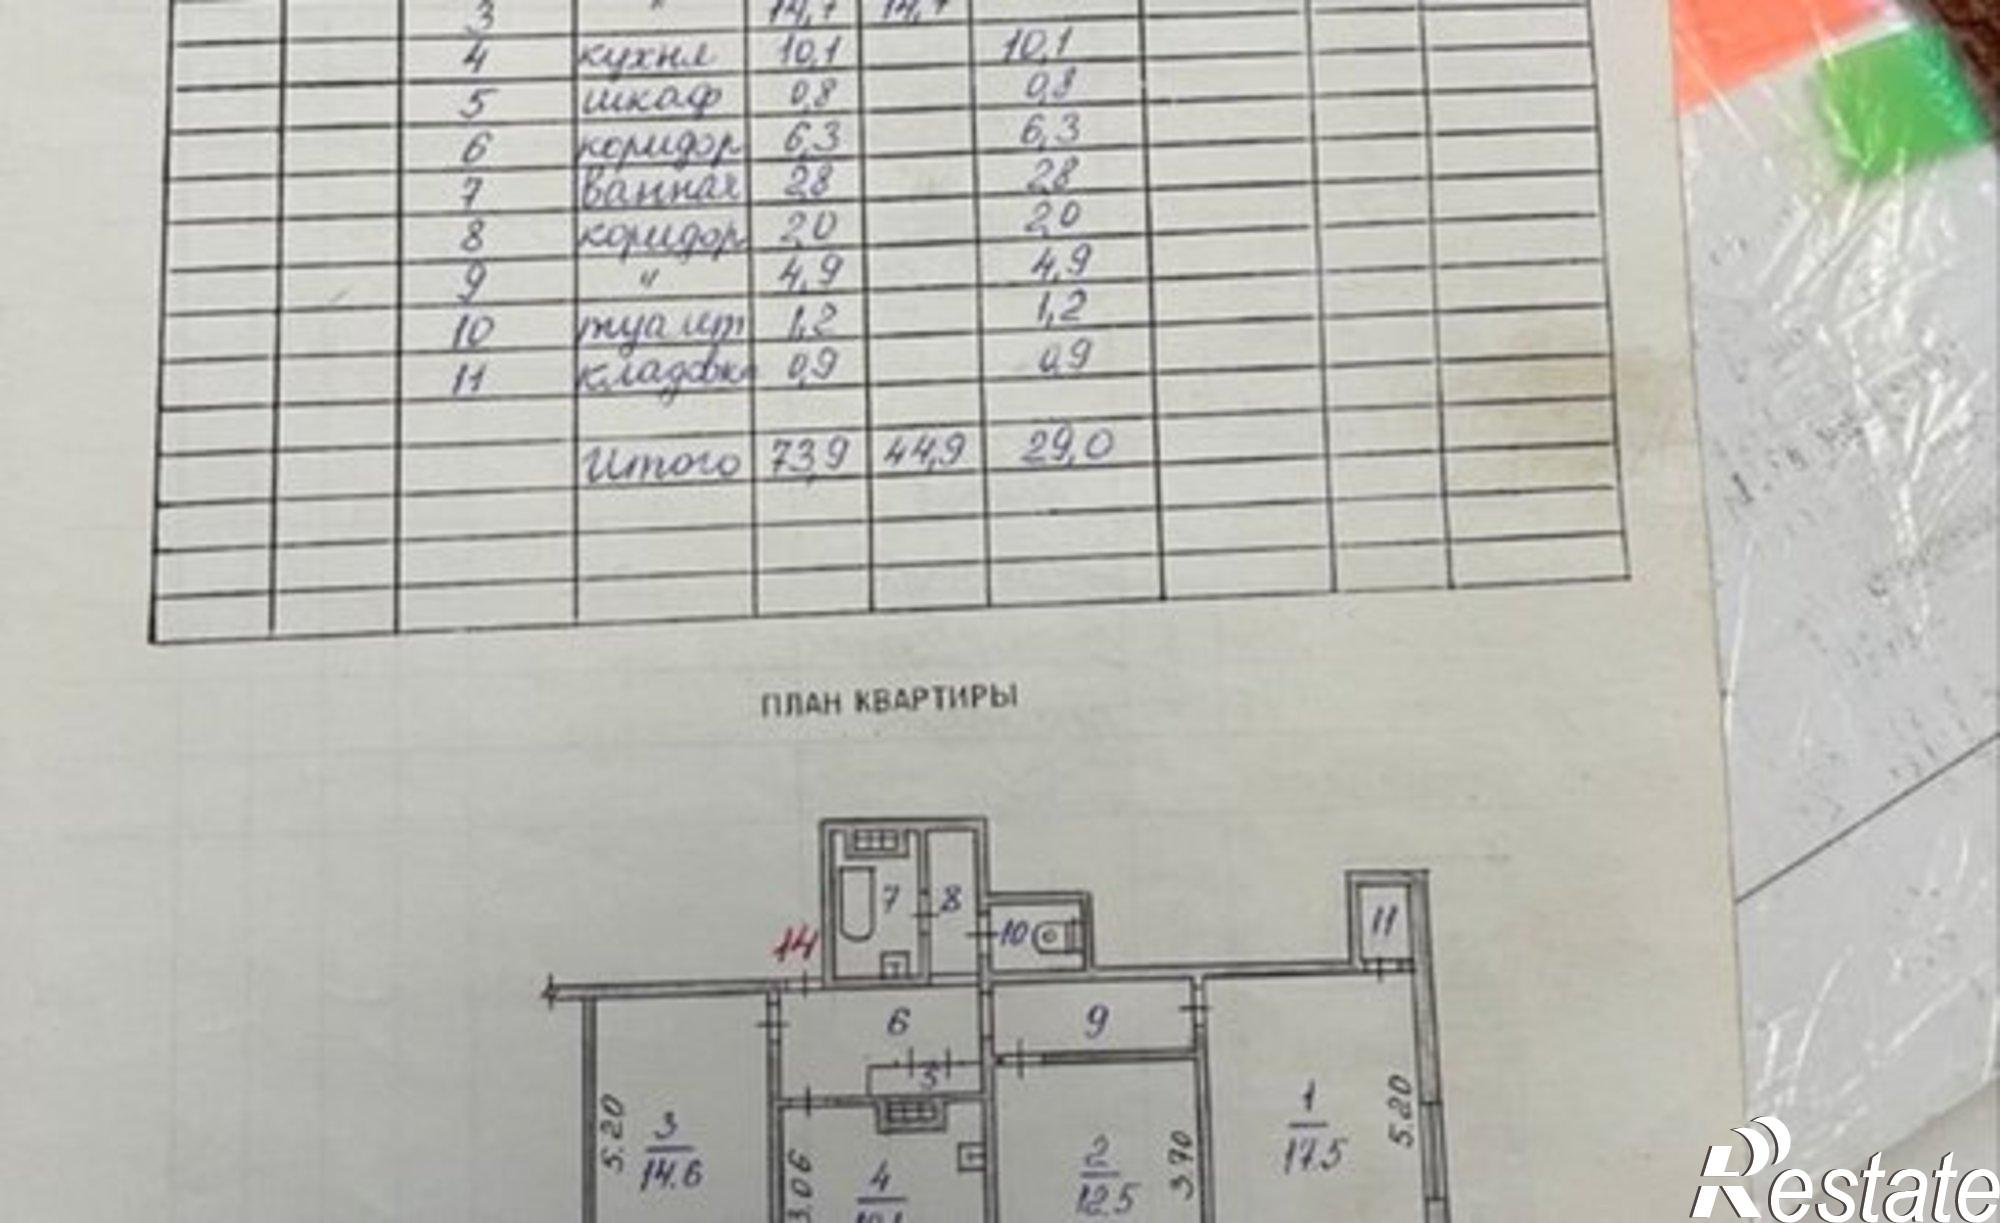 3 " 14,7 14,7
4 кухня 10,1 10,1
5 шкаф 0,8 0,8
6 коридор 6,3 6,3
7 ванная 2,8 2,8
8 коридор 2,0 2,0
9 " 4,9 4,9
10 туалет 1,2 1,2
11 кладовка 0,9 0,9
Итого 73,9 44,9 29,0
ПЛАН КВАРТИРЫ
7 8
14 10 11
6 9
5
5.20 3 14.6
3.06 4
2 12.5 3.70
1 17.5 5.20
Restate